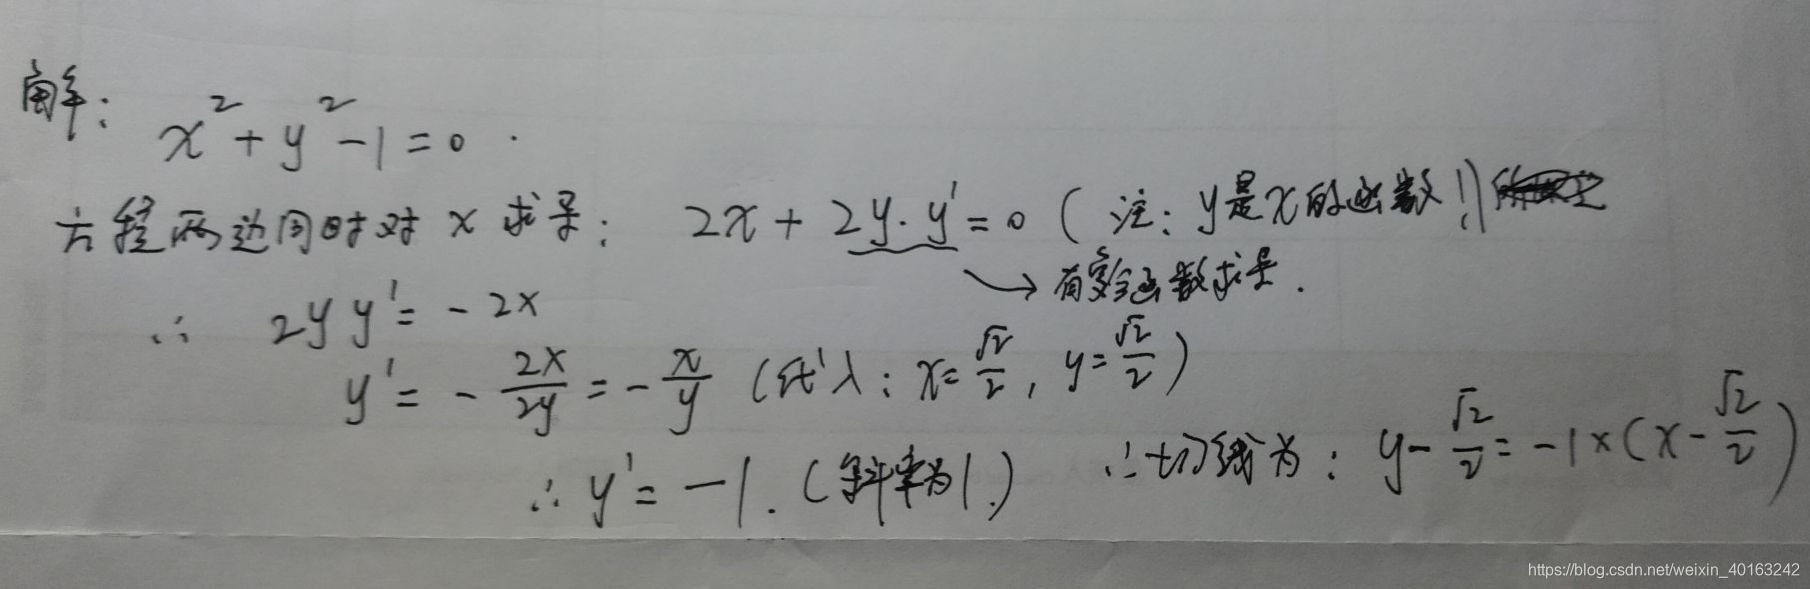 解: x²+y²-1=0.
方程两边同时对 x 求导: 2x+2y·y'=0 (注: y是x的函数!)
→ 有复合函数求导.
∴ 2yy'=-2x
y'=-2x/2y=-x/y (代入: x=√2/2, y=√2/2)
∴ y'=-1. (斜率为1.) ∴切线为: y-√2/2=-1×(x-√2/2)
https://blog.csdn.net/weixin_40163242